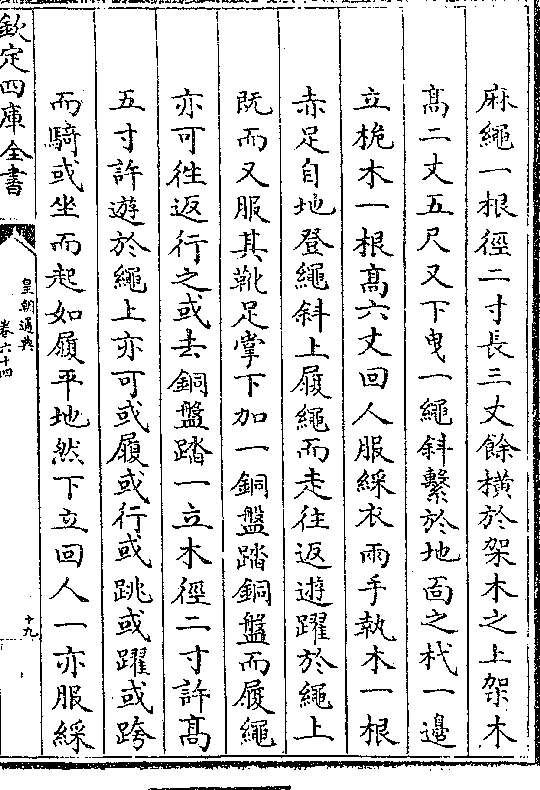 麻繩一根徑二寸長三丈餘横於架木之上架木
髙二丈五尺又下曳一繩斜繫於地面之杙一邉
立桅木一根髙六丈回人服綵衣兩手執木一根
赤足自地登繩斜上履繩而走往返遊躍於繩上
既而又服其靴足掌下加一銅盤踏銅盤而履繩
亦可徃返行之或去銅盤踏一立木徑二寸許髙
五寸許遊於繩上亦可或履或行或跳或躍或跨
而騎或坐而起如履平地然下立回人一亦服綵
欽定四庫全書
皇朝通典
卷六十四
十九